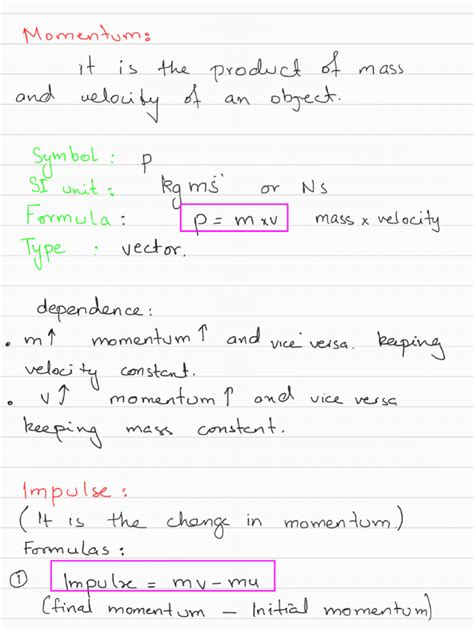 Momentum:
it is the product of mass
and velocity of an object.
Symbol : p
SI unit : kg ms⁻¹ or Ns
Formula : p = m×v mass × velocity
Type : vector.
dependence:
• m↑ momentum ↑ and vice versa. keeping
velocity constant.
• v↑ momentum ↑ and vice versa
keeping mass constant.
Impulse :
(It is the change in momentum)
Formulas :
① Impulse = mv - mu
(final momentum - Initial momentum)